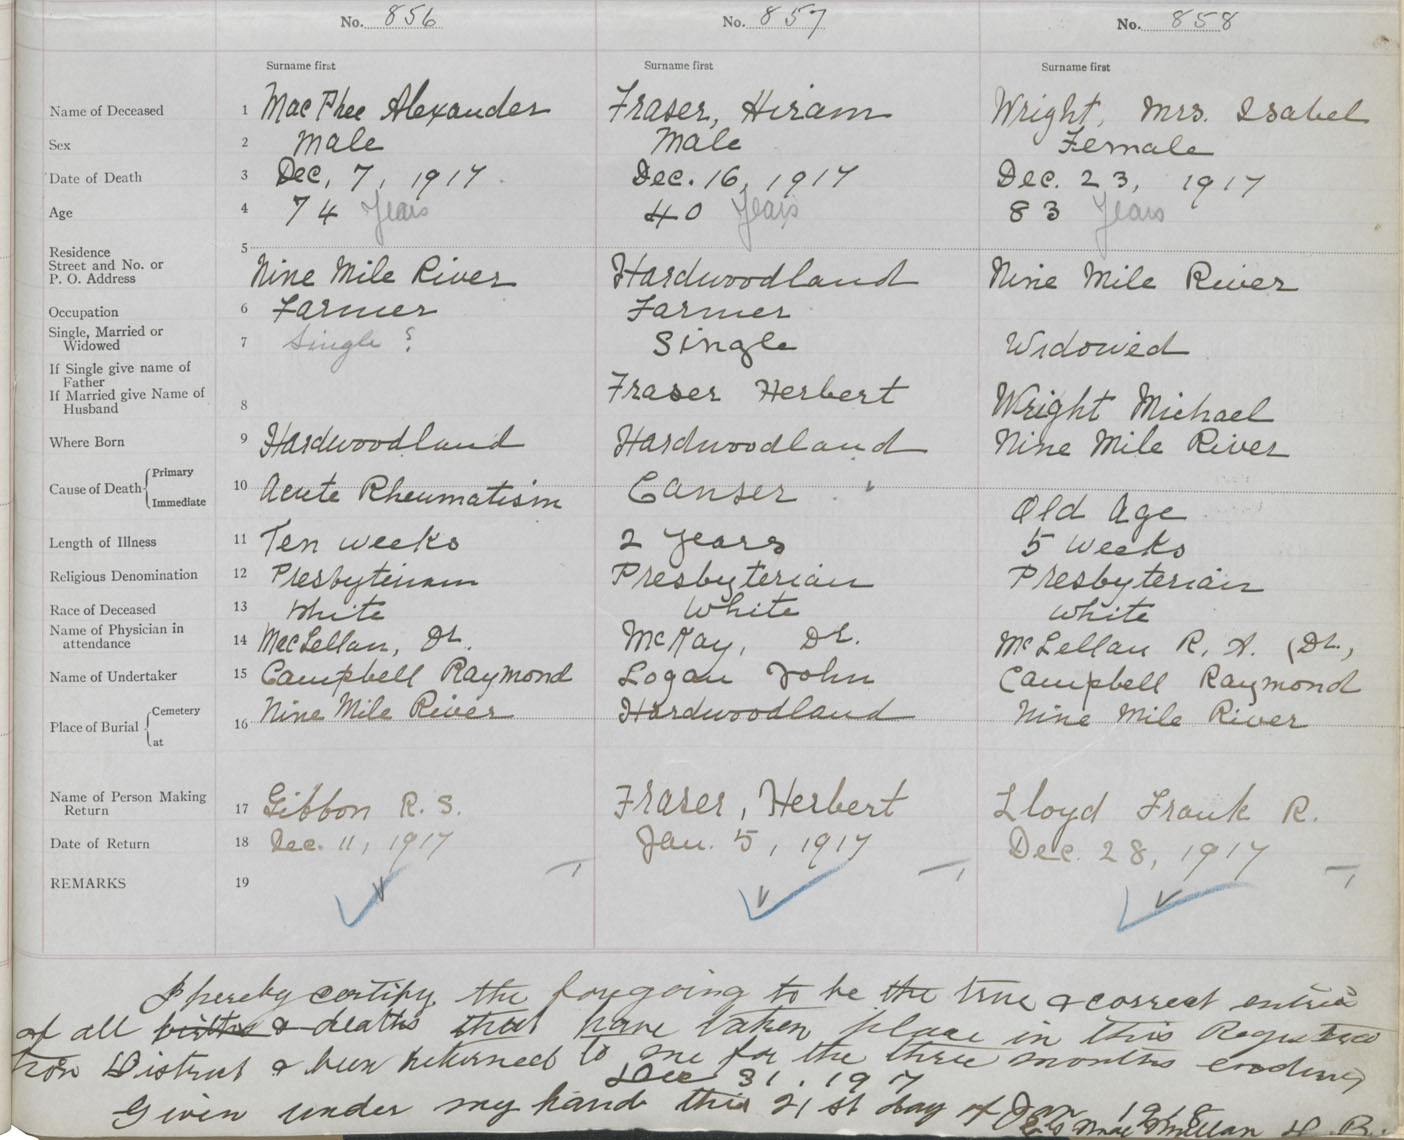 No. 856 No. 857 No. 858
Surname first Surname first Surname first
Name of Deceased 1 MacPhee Alexander Fraser, Hiram Wright, Mrs. Isabel
Sex 2 Male Male Female
Date of Death 3 Dec, 7, 1917 Dec. 16, 1917 Dec. 23, 1917
Age 4 74 Years 40 Years 83 Years
Residence 5
Street and No. or
P. O. Address Nine Mile River Hardwoodland Nine Mile River
Occupation 6 Farmer Farmer
Single, Married or
Widowed 7 Single ? Single Widowed
If Single give name of
Father
If Married give Name of
Husband 8 Fraser Herbert Wright Michael
Where Born 9 Hardwoodland Hardwoodland Nine Mile River
Cause of Death Primary
Immediate 10 Acute Rheumatism Canser Old Age
Length of Illness 11 Ten weeks 2 Years 5 Weeks
Religious Denomination 12 Presbyterian Presbyterian Presbyterian
Race of Deceased 13 White White White
Name of Physician in
attendance 14 MacLellan, Dr. McKay, Dr. McLellan R. A. (Dr.,
Name of Undertaker 15 Campbell Raymond Logan John Campbell Raymond
Place of Burial Cemetery
at 16 Nine Mile River Hardwoodland Nine Mile River
Name of Person Making
Return 17 Gibbon R. S. Fraser, Herbert Lloyd Frank R.
Date of Return 18 Dec. 11, 1917 Jan. 5, 1917 Dec. 28, 1917
REMARKS 19
I hereby certify the foregoing to be the true & correct entries
of all births & deaths that have taken place in this Registra
tion District & been returned to me for the three months ending
Dec 31. 1917
Given under my hand this 21st day of Jan 1918
MacMillan D. R.